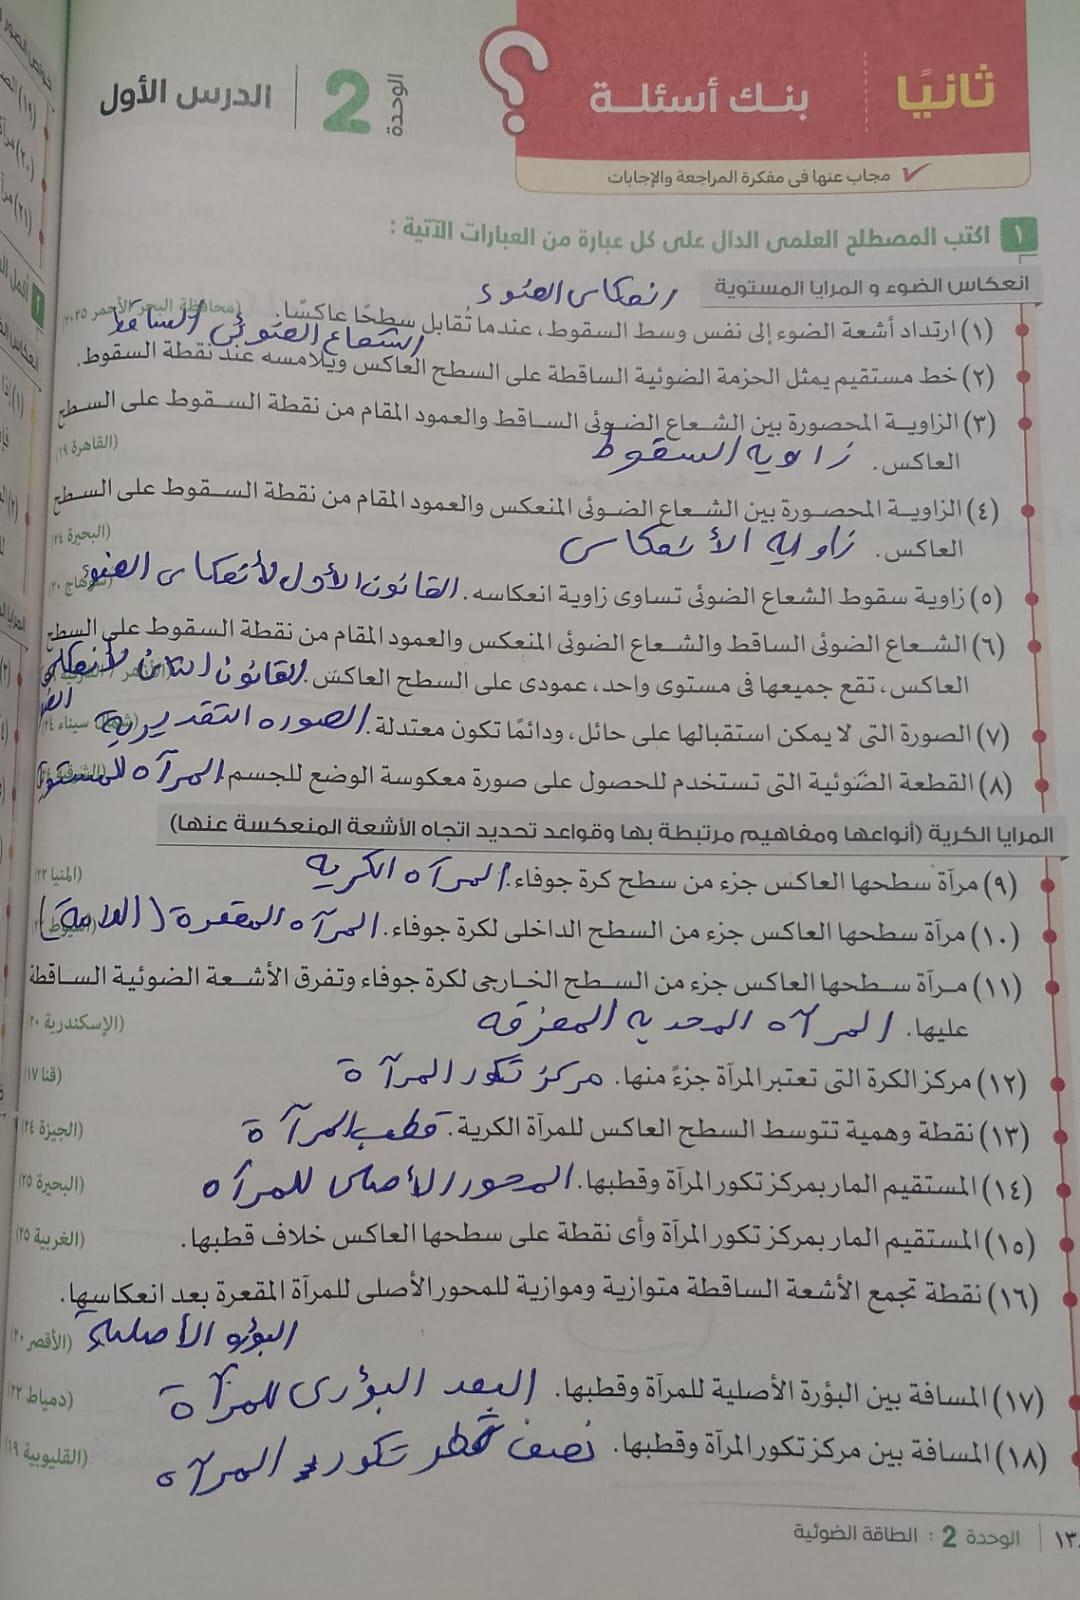 ثانيًا
بنك أسئلة
؟
الوحدة 2
الدرس الأول
مجاب عنها فى مفكرة المراجعة والإجابات
١ اكتب المصطلح العلمى الدال على كل عبارة من العبارات الآتية :
انعكاس الضوء و المرايا المستوية
انعكاس الضوء
(١) ارتداد أشعة الضوء إلى نفس وسط السقوط، عندما تُقابل سطحًا عاكسًا. (محافظة البحر الأحمر ٢٠٢٥)
الشعاع الضوئى الساقط
(٢) خط مستقيم يمثل الحزمة الضوئية الساقطة على السطح العاكس ويلامسه عند نقطة السقوط.
(٣) الزاوية المحصورة بين الشعاع الضوئى الساقط والعمود المقام من نقطة السقوط على السطح
العاكس. زاويه السقوط (القاهرة ١٩)
(٤) الزاوية المحصورة بين الشعاع الضوئى المنعكس والعمود المقام من نقطة السقوط على السطح
العاكس. زاويه الأنعكاس (البحيرة ٢٤)
(٥) زاوية سقوط الشعاع الضوئى تساوى زاوية انعكاسه. القانون الأول لأنعكاس الضوء (سوهاج ٢٠)
(٦) الشعاع الضوئى الساقط والشعاع الضوئى المنعكس والعمود المقام من نقطة السقوط على السطح
العاكس، تقع جميعها فى مستوى واحد، عمودى على السطح العاكس. القانون الثانى لأنعكاس
(٧) الصورة التى لا يمكن استقبالها على حائل، ودائمًا تكون معتدلة. الصوره التقديرية (شمال سيناء ٢٤)
(٨) القطعة الضوئية التى تستخدم للحصول على صورة معكوسة الوضع للجسم. المرآه المستوية
المرايا الكرية (أنواعها ومفاهيم مرتبطة بها وقواعد تحديد اتجاه الأشعة المنعكسة عنها)
(٩) مرآة سطحها العاكس جزء من سطح كرة جوفاء. المرآه الكريه (المنيا ٢٢)
(١٠) مرآة سطحها العاكس جزء من السطح الداخلى لكرة جوفاء. المرآه المقعرة (اللامة)
(١١) مرآة سطحها العاكس جزء من السطح الخارجى لكرة جوفاء وتفرق الأشعة الضوئية الساقطة
عليها. المرآه المحدبه المفرقه (الإسكندرية ٢٠)
(١٢) مركز الكرة التى تعتبر المرآة جزءً منها. مركز تكور المرآة (قنا ١٧)
(١٣) نقطة وهمية تتوسط السطح العاكس للمرآة الكرية. قطب المرآة (الجيزة ٢٤)
(١٤) المستقيم المار بمركز تكور المرآة وقطبها. المحور الأصلى للمرآه (البحيرة ٢٥)
(١٥) المستقيم المار بمركز تكور المرآة وأى نقطة على سطحها العاكس خلاف قطبها. (الغربية ٢٥)
(١٦) نقطة تجمع الأشعة الساقطة متوازية وموازية للمحور الأصلى للمرآة المقعرة بعد انعكاسها.
البؤره الأصليه (الأقصر ٢٠)
(١٧) المسافة بين البؤرة الأصلية للمرآة وقطبها. البعد البؤرى للمرآة (دمياط ٢٢)
(١٨) المسافة بين مركز تكور المرآة وقطبها. نصف قطر تكور المرآه (القليوبية ١٩)
الوحدة 2 : الطاقة الضوئية